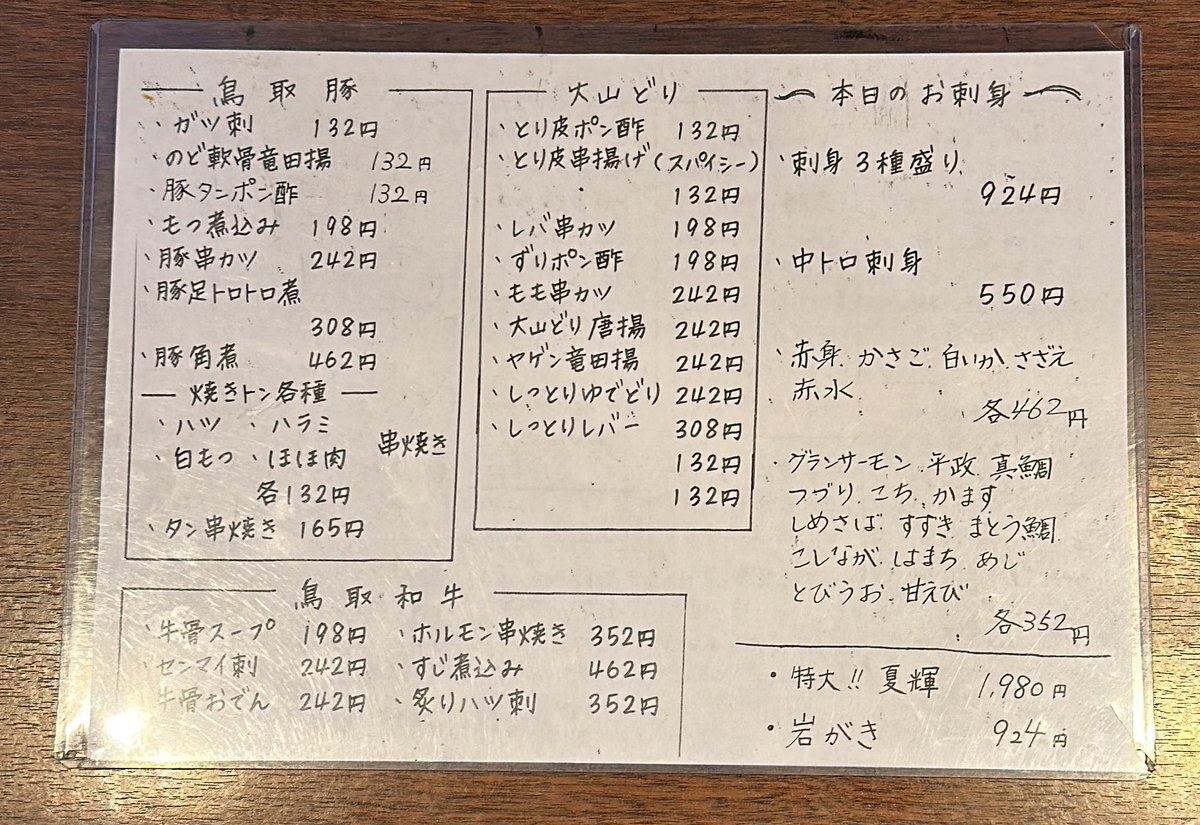 鳥取豚
・ガツ刺 132円
・のど軟骨竜田揚 132円
・豚タンポン酢 132円
・もつ煮込み 198円
・豚串カツ 242円
・豚足トロトロ煮
308円
・豚角煮 462円
― 焼きトン各種 ―
・ハツ ・ハラミ
串焼き
・白もつ ・ほほ肉
各132円
・タン串焼き 165円
大山どり
・とり皮ポン酢 132円
・とり皮串揚げ(スパイシー)
132円
・レバ串カツ 198円
・ずりポン酢 198円
・もも串カツ 242円
・大山どり唐揚 242円
・ヤゲン竜田揚 242円
・しっとりゆでどり 242円
・しっとりレバー 308円
132円
132円
鳥取和牛
・牛骨スープ 198円 ・ホルモン串焼き 352円
・センマイ刺 242円 ・すじ煮込み 462円
牛骨おでん 242円 ・炙りハツ刺 352円
〜本日のお刺身〜
・刺身3種盛り
924円
・中トロ刺身
550円
・赤身.かさご.白いか.さざえ
赤水
各462円
・グランサーモン.平政.真鯛
つづり.こち.かます
しめさば.すずき.まとう鯛
こしなが.はまち.めじ
とびうお.甘えび
各352円
・特大!!夏輝 1,980円
・岩がき 924円